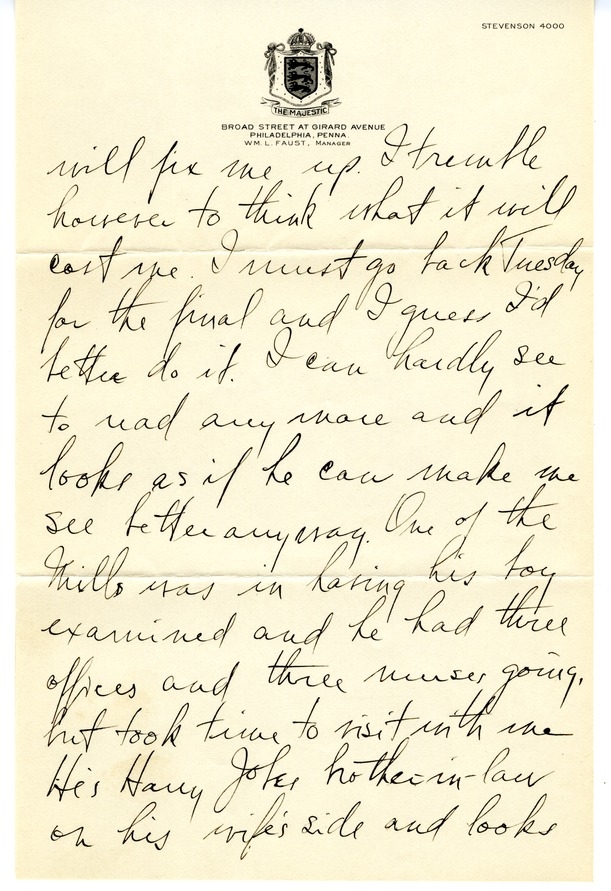 STEVENSON 4000
THE MAJESTIC
BROAD STREET AT GIRARD AVENUE
PHILADELPHIA, PENNA.
WM. L. FAUST, MANAGER
will fix me up. I tremble
however to think what it will
cost me. I must go back Tuesday
for the final and I guess I'd
better do it. I can hardly see
to read any more and it
looks as if he can make me
see better anyway. One of the
Mills was in having his boy
examined and he had three
offices and three nurses going,
but took time to visit with me
He's Harry brother-in-law
on his wife's side and looks